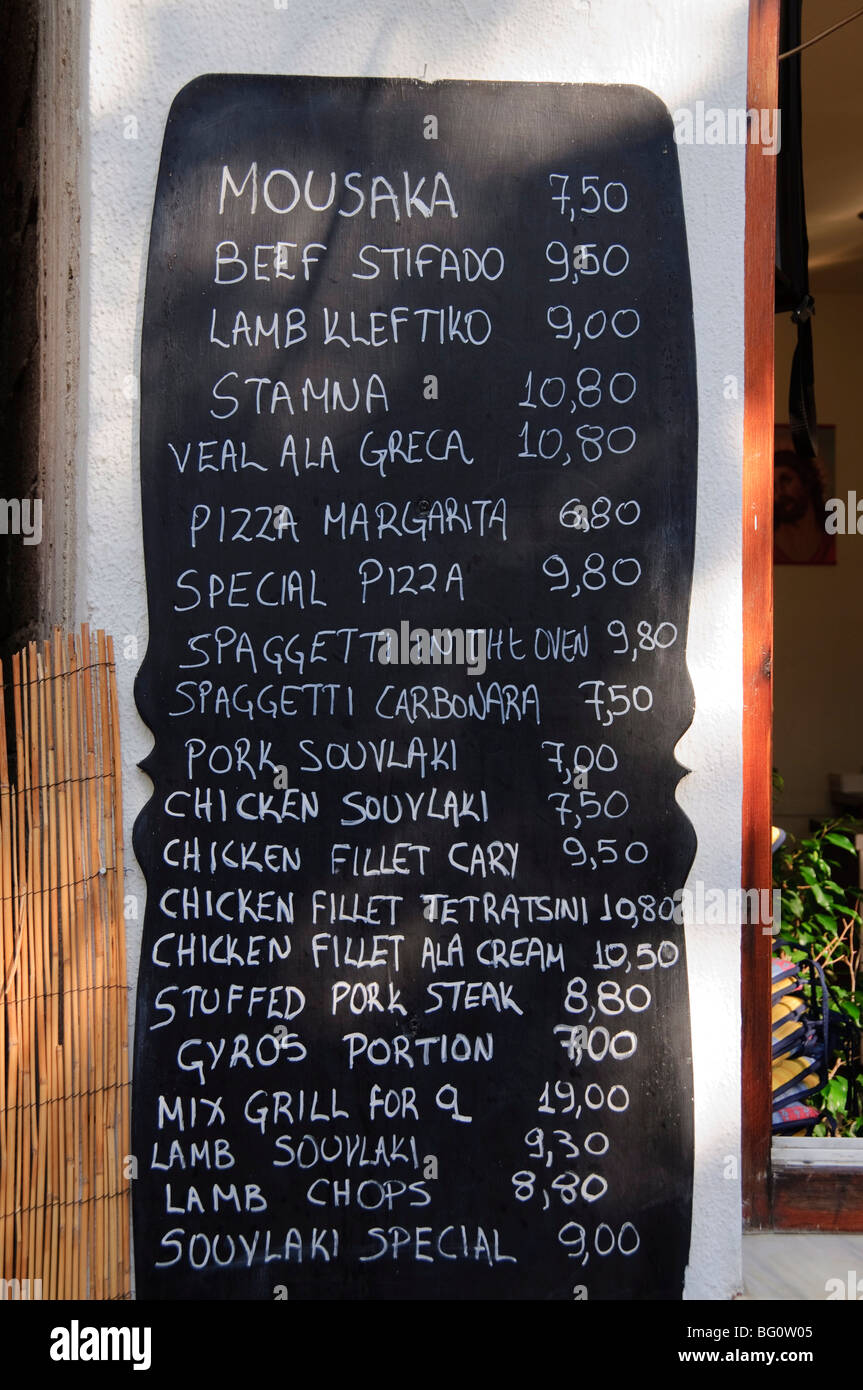 MOUSAKA 7,50
BEEF STIFADO 9,50
LAMB KLEFTIKO 9,00
STAMNA 10,80
VEAL ALA GRECA 10,80
PIZZA MARGARITA 6,80
SPECIAL PIZZA 9,80
SPAGGETTI IN THE OVEN 9,80
SPAGGETTI CARBONARA 7,50
PORK SOUVLAKI 7,00
CHICKEN SOUVLAKI 7,50
CHICKEN FILLET CARY 9,50
CHICKEN FILLET TETRATSINI 10,80
CHICKEN FILLET ALA CREAM 10,50
STUFFED PORK STEAK 8,80
GYROS PORTION 7,00
MIX GRILL FOR 2 19,00
LAMB SOUVLAKI 9,30
LAMB CHOPS 8,80
SOUVLAKI SPECIAL 9,00
alamy
Image ID: BG0W05
www.alamy.com